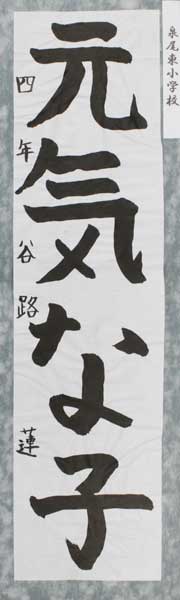 泉尾東小学校
元気な子
四年谷路蓮